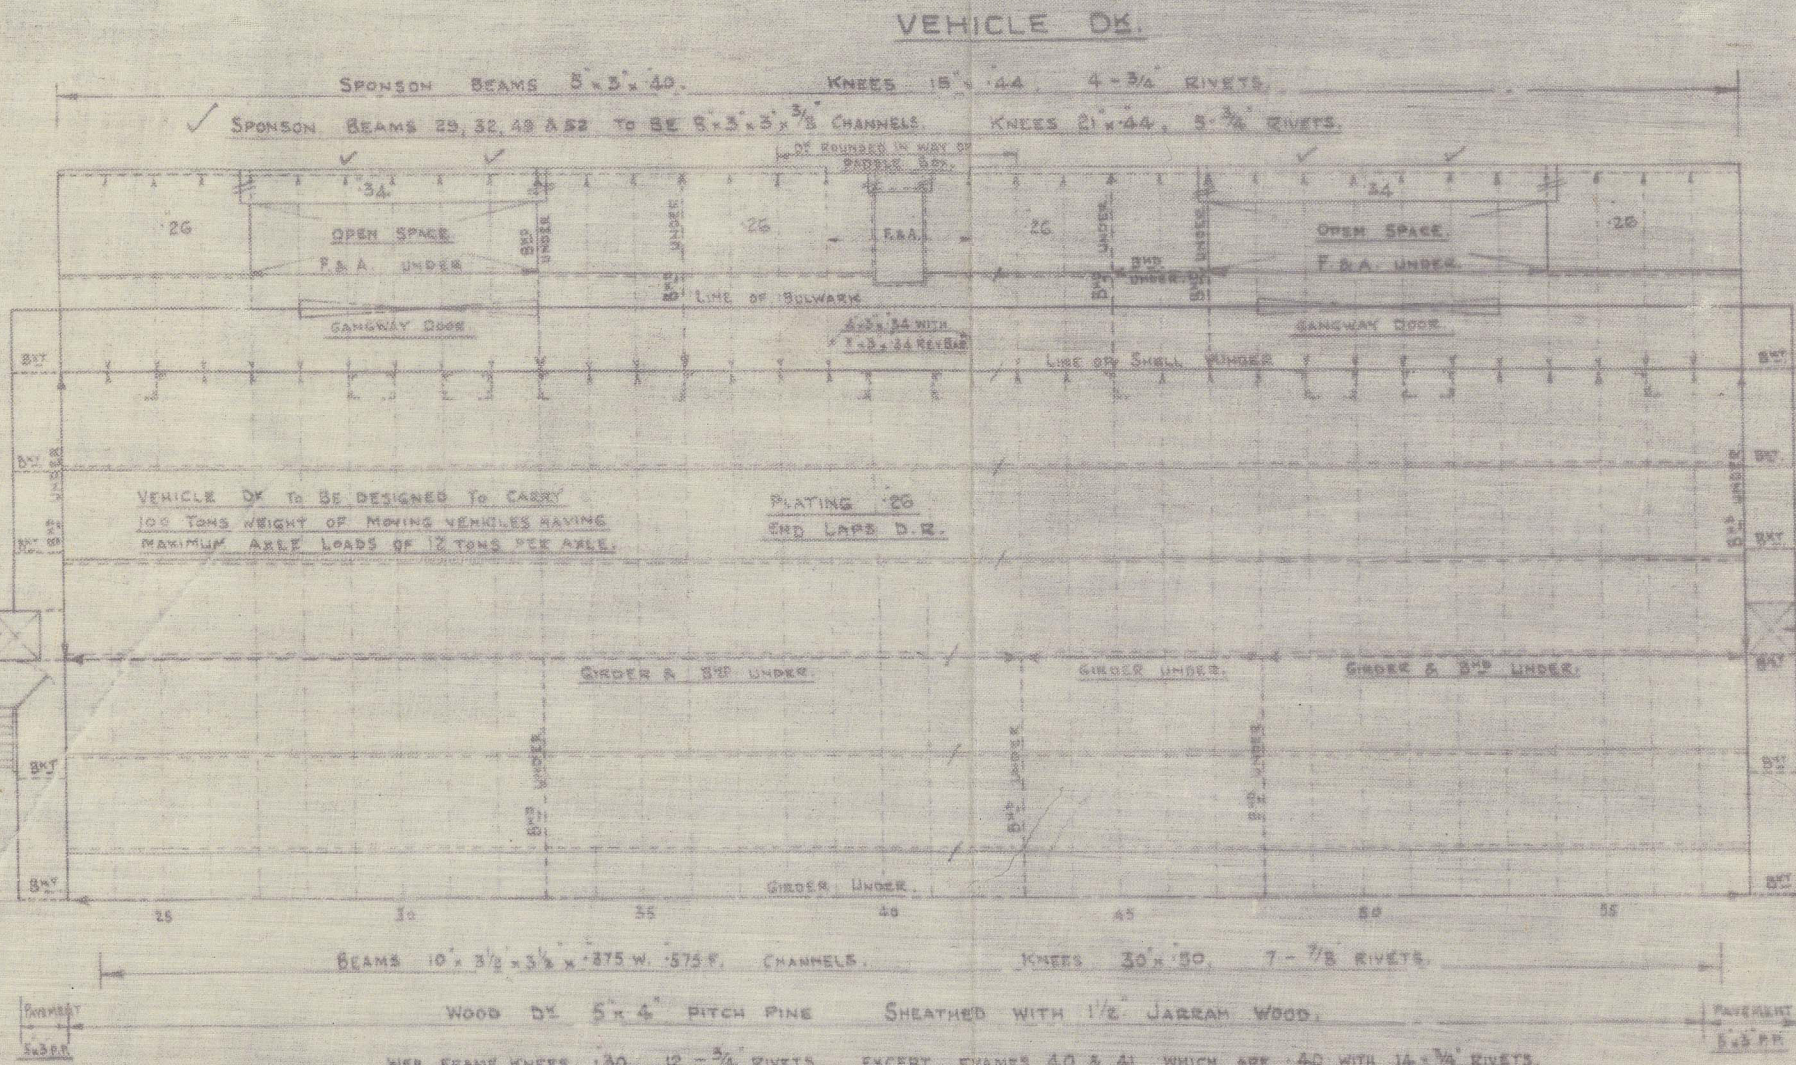 VEHICLE DK.
SPONSON BEAMS 5" x 3" x .40. KNEES 15" x .44. 4 - 3/4" RIVETS.
SPONSON BEAMS 29, 32, 49 & 52 TO BE 8" x 3" x 3" x 3/8" CHANNELS. KNEES 21" x .44. 5 - 3/4" RIVETS.
DK ROUNDED IN WAY OF
PADDLE BOX.
.34 .34
.26 .26 .26 .26
OPEN SPACE F. & A. OPEN SPACE.
F. & A. UNDER F. & A. UNDER.
BHD UNDER
BHD UNDER
BHD UNDER
BHD UNDER
BHD
UNDER.
LINE OF BULWARK
GANGWAY DOOR GANGWAY DOOR
.34 WITH
.34 REV BAR
LINE OF SHELL UNDER
BKT BKT
BKT BKT
BKT BKT
BHD UNDER
BHD UNDER
VEHICLE DK TO BE DESIGNED TO CARRY
100 TONS WEIGHT OF MOVING VEHICLES HAVING
MAXIMUM AXLE LOADS OF 12 TONS PER AXLE.
PLATING .26
END LAPS D.R.
GIRDER & BHD UNDER. GIRDER UNDER. GIRDER & BHD UNDER.
BKT
BHD UNDER
BHD UNDER
BHD UNDER
BKT BKT
BKT BKT
GIRDER UNDER.
25 30 35 40 45 50 55
BEAMS 10" x 3 1/2" x 3 1/2" x .375 W. .575 F. CHANNELS. KNEES 30" x .50. 7 - 7/8" RIVETS.
PAVEMENT WOOD DK 5" x 4" PITCH PINE SHEATHED WITH 1 1/2" JARRAH WOOD. PAVEMENT
5 x 3 P.P. 5 x 3 P.P.
WEB FRAME KNEES .30 12 - 3/4" RIVETS EXCEPT FRAMES 40 & 41 WHICH ARE .40 WITH 14 - 3/4" RIVETS.